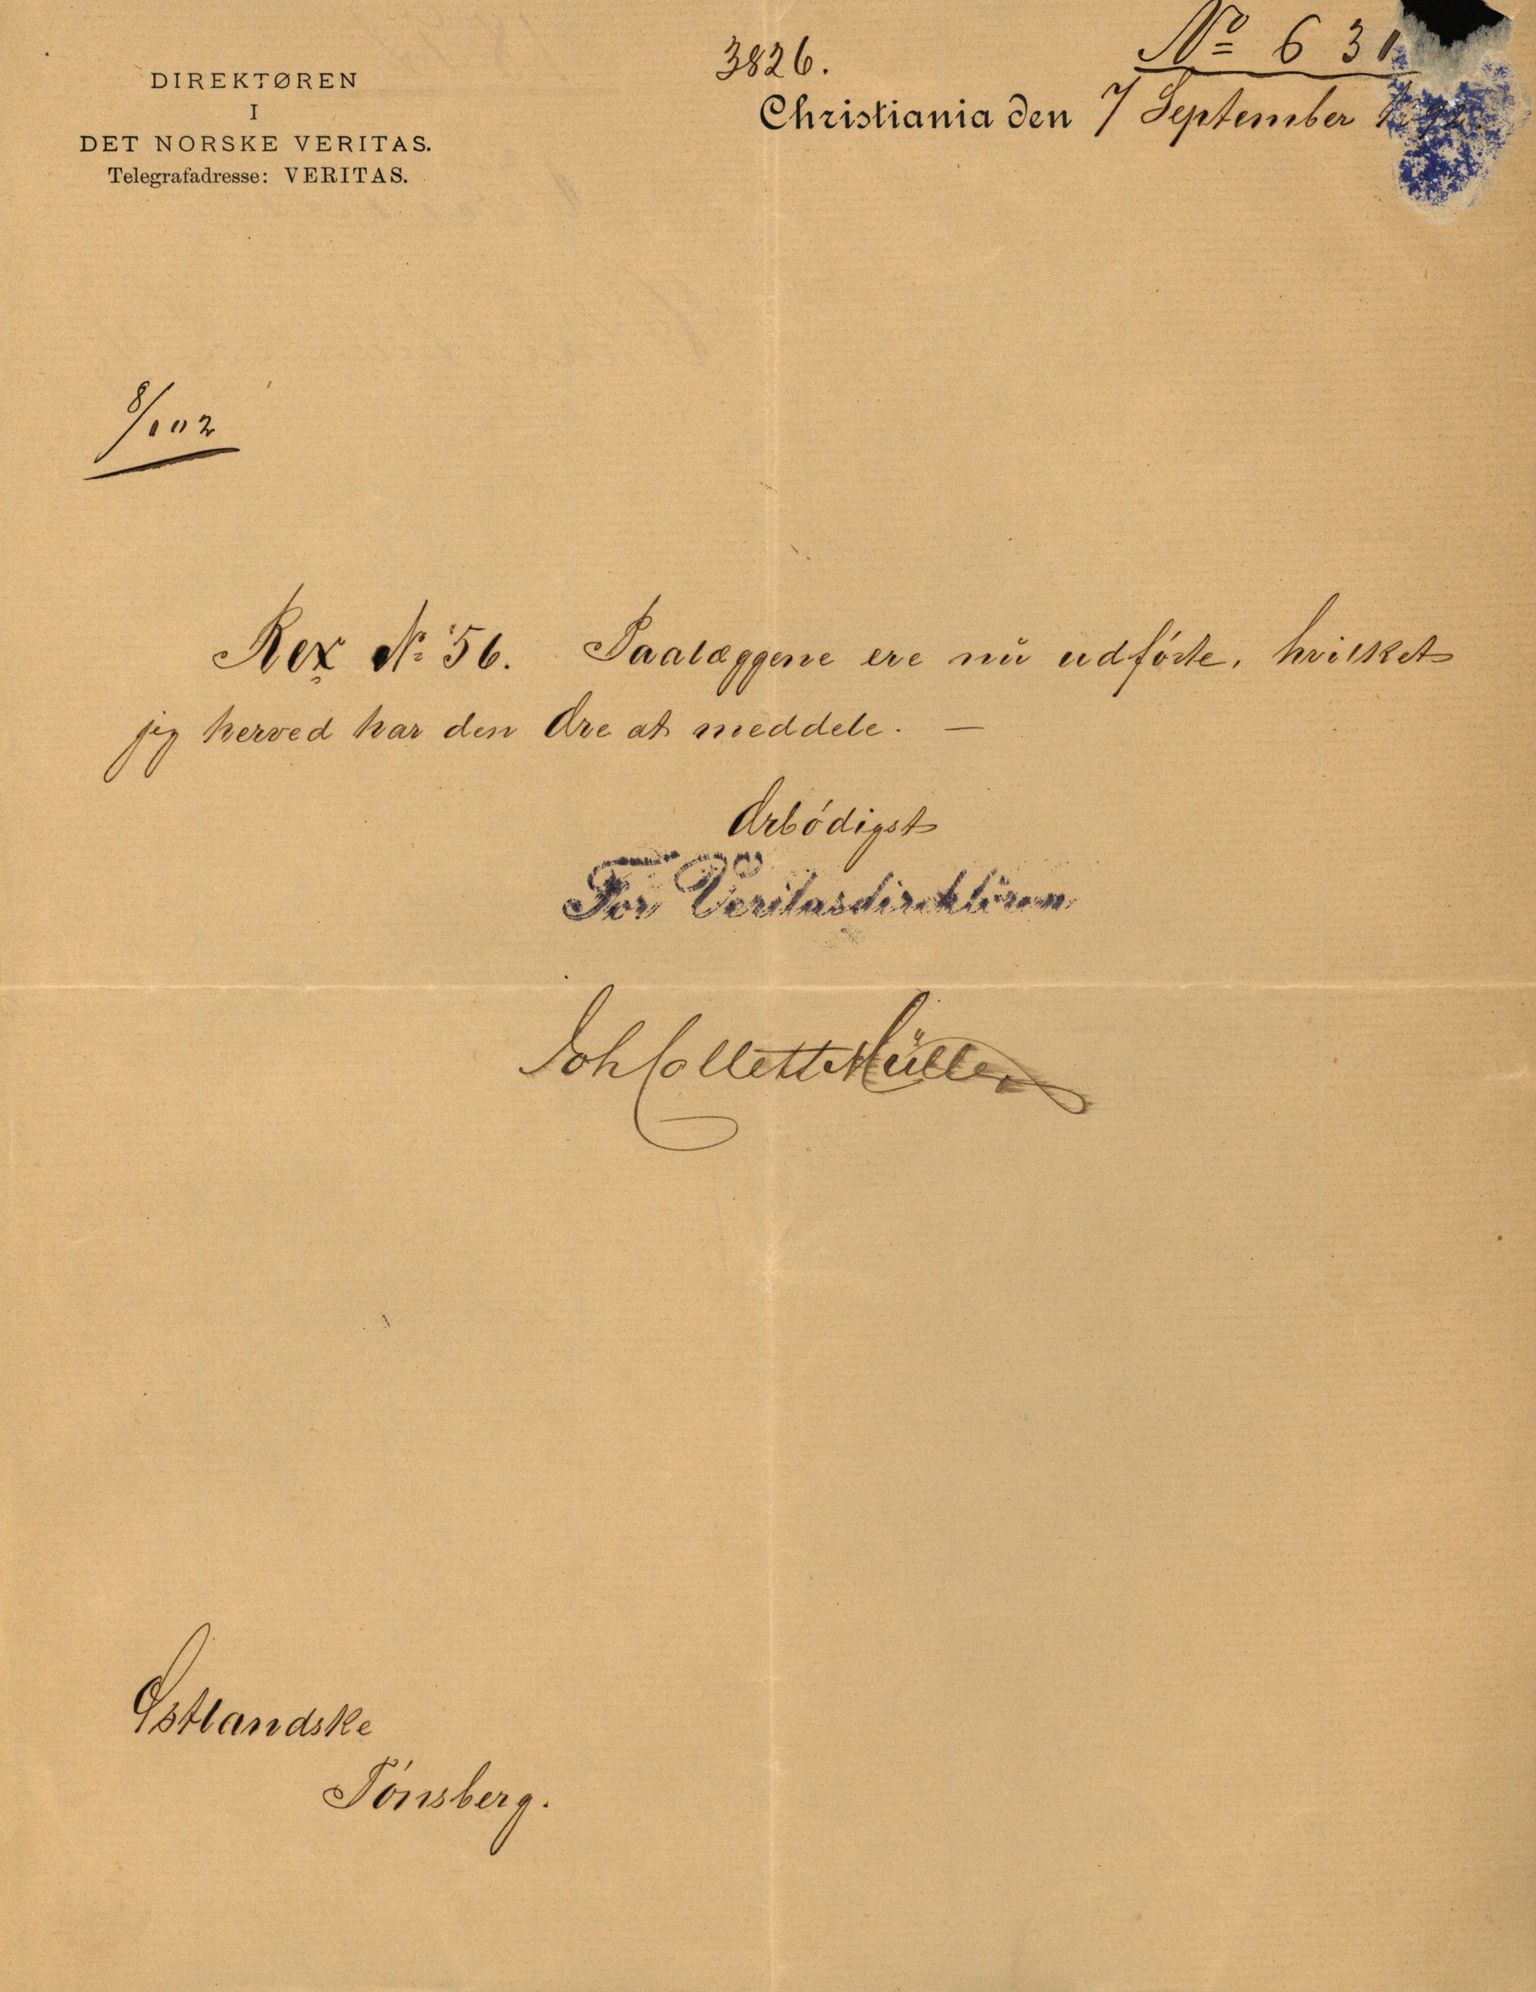 No 6 3
3826.
DIREKTØREN
I
DET NORSKE VERITAS.
Telegrafadresse: VERITAS.
Christiania den 7 September
8/
Rex No 56. Paalæggene ere nu udførte, hvilket
jeg herved har den Ære at meddele. —
Ærbødigst
For Veritasdirektören
Joh Collett Müller
Østlandske
Tønsberg.